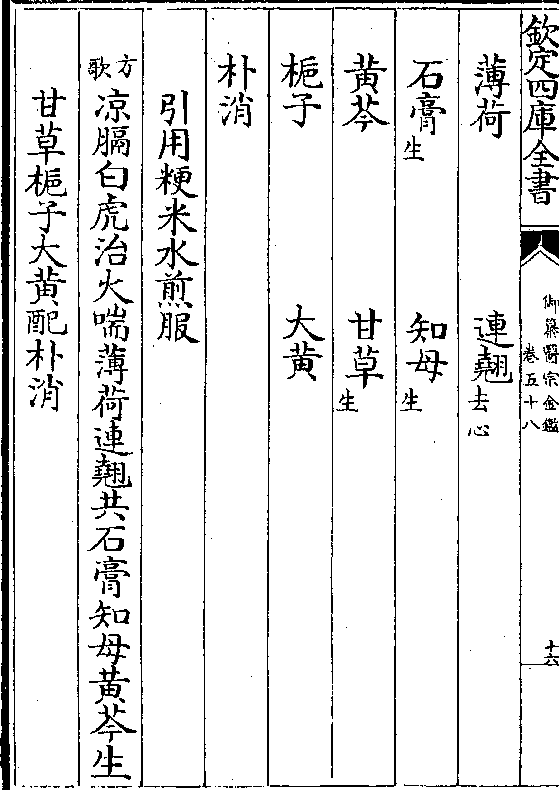 欽定四庫全書
御纂醫宗金鑑
卷五十八
十六
薄荷 連翹去心
石膏生 知母生
黃芩 甘草生
梔子 大黃
朴消
引用粳米水煎服
方歌 凉膈白虎治火喘薄荷連翹共石膏知母黃芩生
甘草梔子大黃配朴消